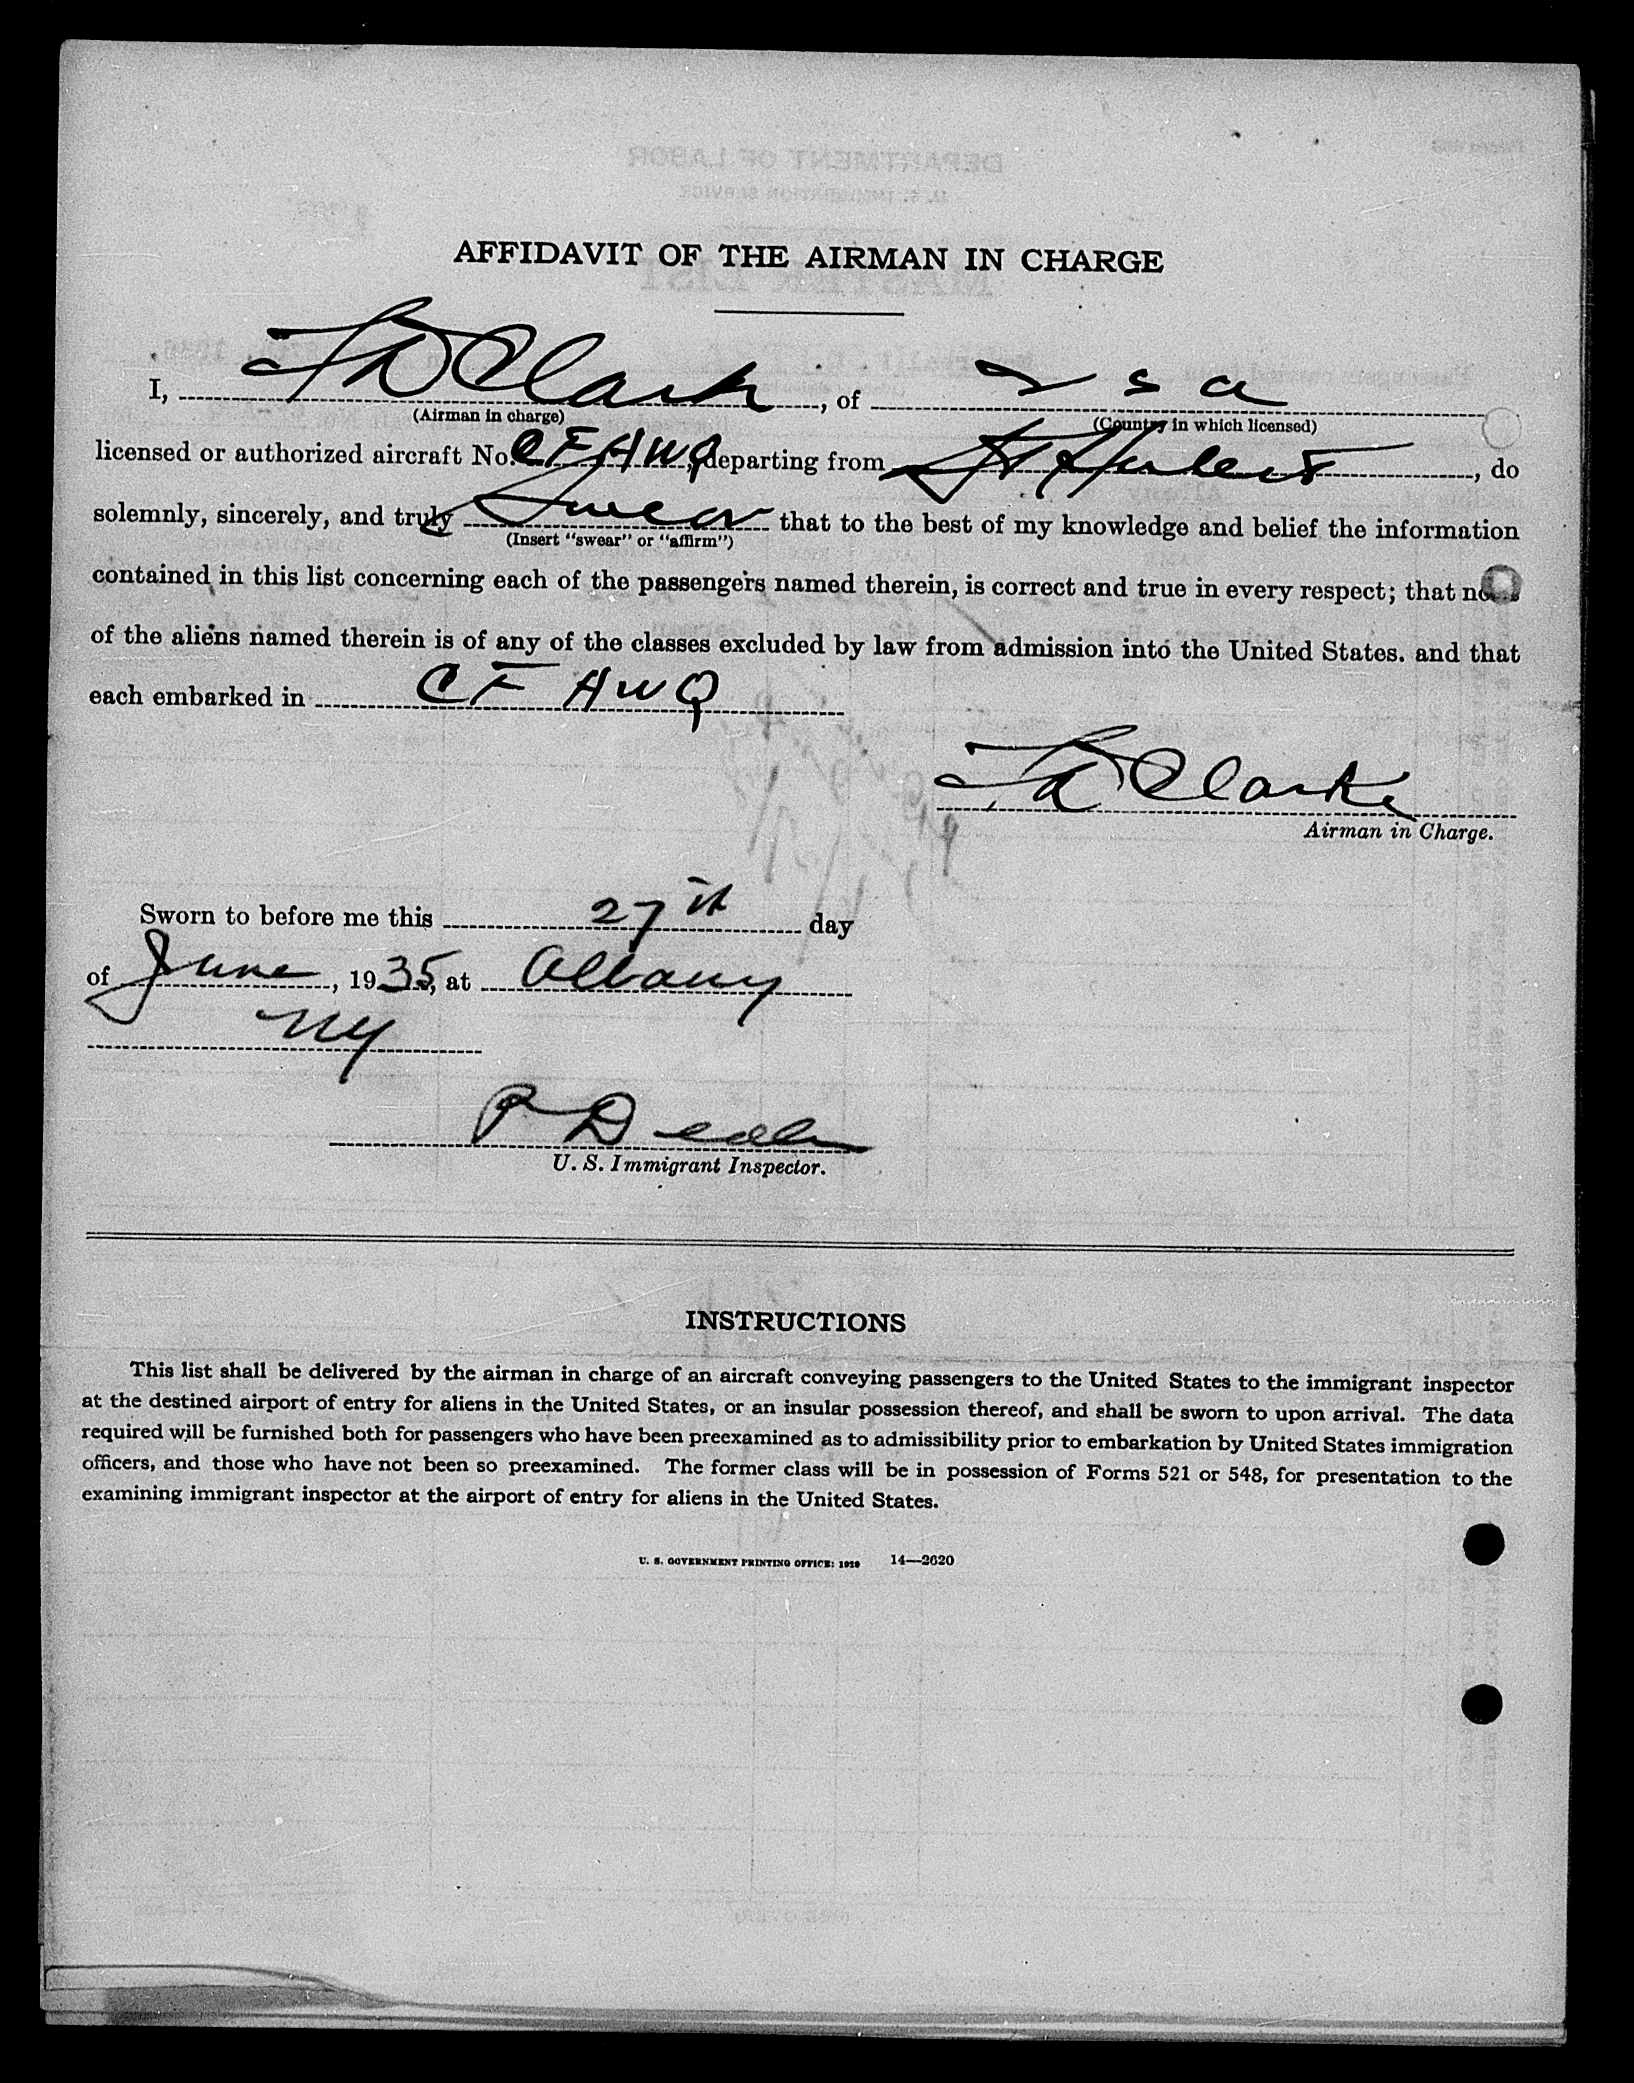 AFFIDAVIT OF THE AIRMAN IN CHARGE
I, Clark, of U S A
(Airman in charge) (Country in which licensed)
licensed or authorized aircraft No. CF AWQ, departing from St Hubert, do
solemnly, sincerely, and truly Swear that to the best of my knowledge and belief the information
(Insert "swear" or "affirm")
contained in this list concerning each of the passengers named therein, is correct and true in every respect; that none
of the aliens named therein is of any of the classes excluded by law from admission into the United States. and that
each embarked in CF AWQ
Clarke
Airman in Charge.
Sworn to before me this 27th day
of June, 1935, at Albany
NY
U. S. Immigrant Inspector.
INSTRUCTIONS
This list shall be delivered by the airman in charge of an aircraft conveying passengers to the United States to the immigrant inspector
at the destined airport of entry for aliens in the United States, or an insular possession thereof, and shall be sworn to upon arrival. The data
required will be furnished both for passengers who have been preexamined as to admissibility prior to embarkation by United States immigration
officers, and those who have not been so preexamined. The former class will be in possession of Forms 521 or 548, for presentation to the
examining immigrant inspector at the airport of entry for aliens in the United States.
U. S. GOVERNMENT PRINTING OFFICE: 1929 14—2620